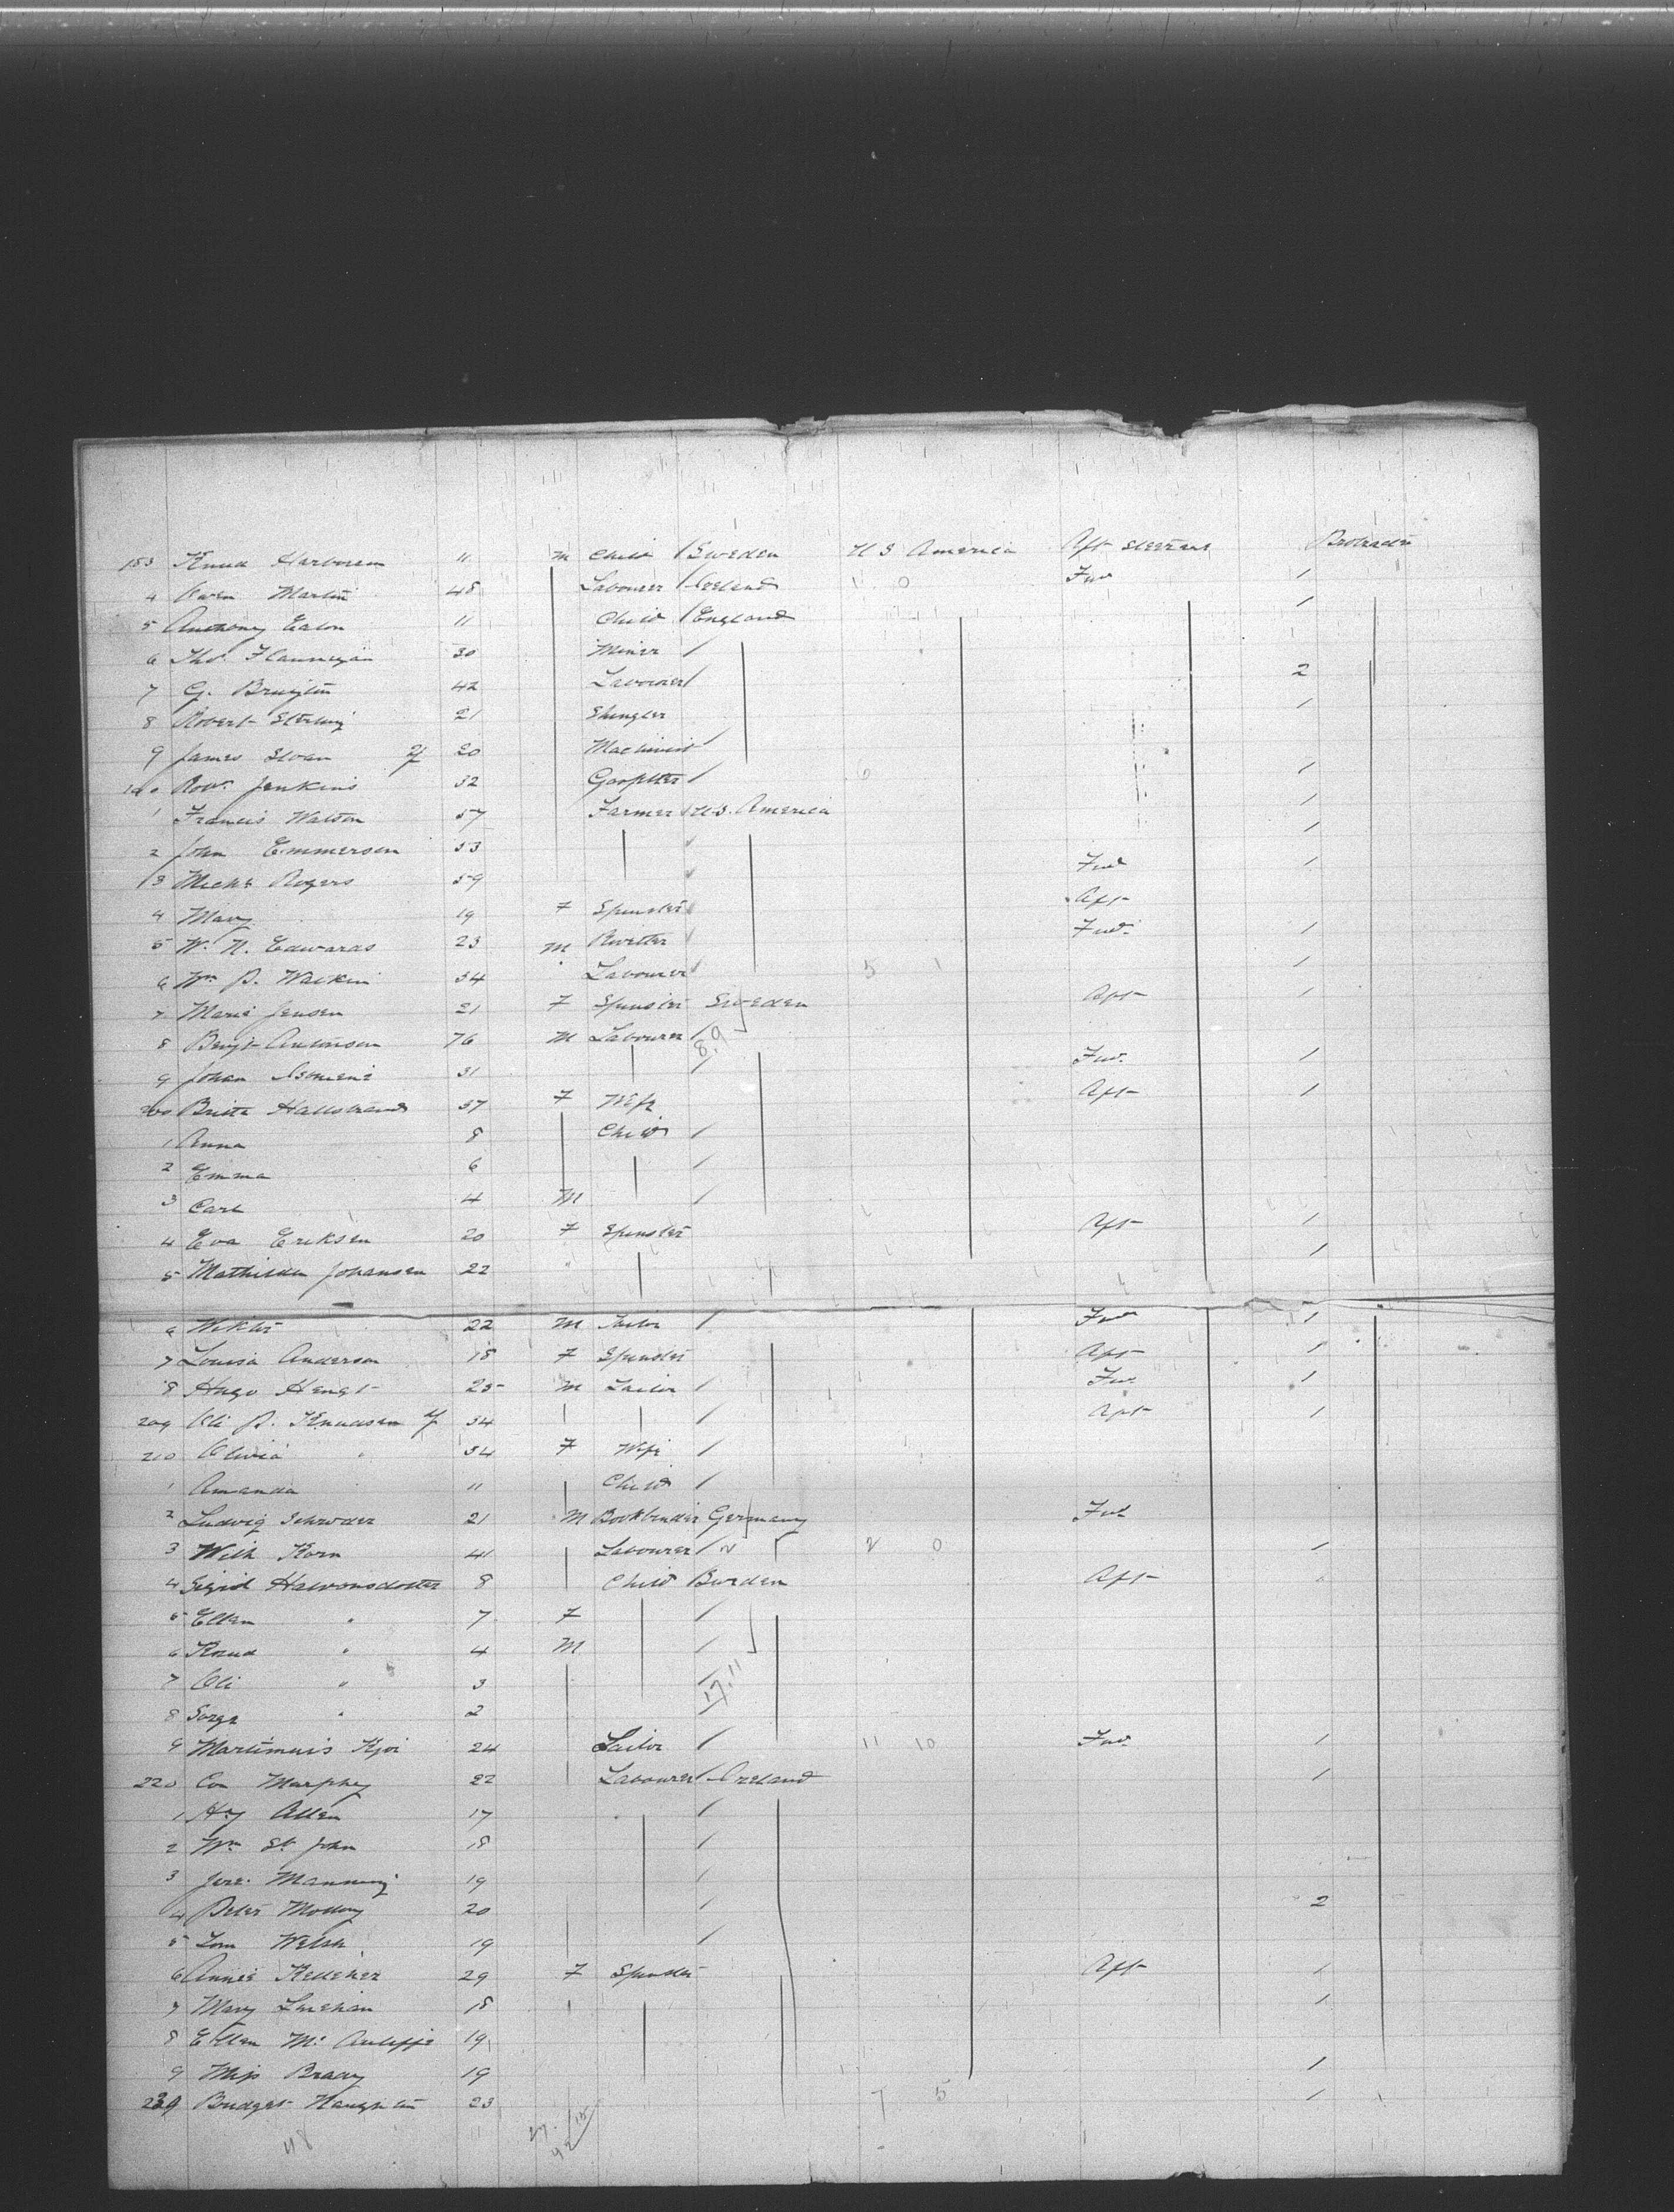 183 Knud Harboresen 11 M Child / Sweden U S America Aft Steerage Protracted
4 Owen Martin 48 Labourer / Ireland 1 0 Fwd 1
5 Anthony Eaton 11 Child / England 1
6 Thos. Flannegan 30 Miner /
7 G. 42 Labourer / 2
8 Robert Sterling 21 Shingler 1
9 James Sloan 20 Machinist /
190 Robt. Jenkins 32 Gasfitter / 6 1
1 Francis Watson 57 Farmer U.S. America 1
2 John Emmerson 53 1
3 Michl Rogers 59 Fwd 1
4 Mary 19 F Spinster Aft
5 W. N. Edwards 23 M Rivetter Fwd. 1
6 Wm P. Watkin 34 Labourer 5 1 1
7 Marie Jensen 21 F Spinster Sweden Aft 1
8 Bengt 76 M Labourer / 8.9
9 Johan 31 / Fwd. 1
200 Britta Hallstrand 37 F Wife Aft 1
1 Anna 8 Child /
2 Emma 6 /
3 Carl 4 M /
4 Eva Eriksen 20 F Spinster Aft 1
5 Mathilda Johansen 22 " 1
6 Wiktor 22 M Tailor / Fwd 1
7 Louisa Anderson 18 F Spinster Aft 1
8 Hugo Hengst 25 M Tailor / Fwd 1
209 Ole P. Knudsen 34 / Aft 1
210 Olivia " 34 F Wife /
1 Amanda 11 Child /
2 Ludvig Schroder 21 M Bookbinder Germany Fwd
3 Wilh Korn 41 Labourer / 2 0 1
4 Sigrid Halvorsdotter 8 Child Aft "
5 Ellen " 7 F /
6 Knud " 4 M /
7 Ole " 3 / 17.11
8 " 2
9 Martinius 24 Sailor / 11 10 Fwd. 1
220 Con Murphey 22 Labourer / Ireland 1
1 Hy Allen 17 /
2 Wm St. John 18 /
3 Jere. Manning 19 /
4 Peter 20 / 2
5 Tom Welsh 19 /
6 Annie Kelleher 29 F Spinster Aft 1
7 Mary Linehan 18 1
8 Ellen Mc Auliffe 19
9 Miss Brady 19 1
Bridget 23 7 5 1
48